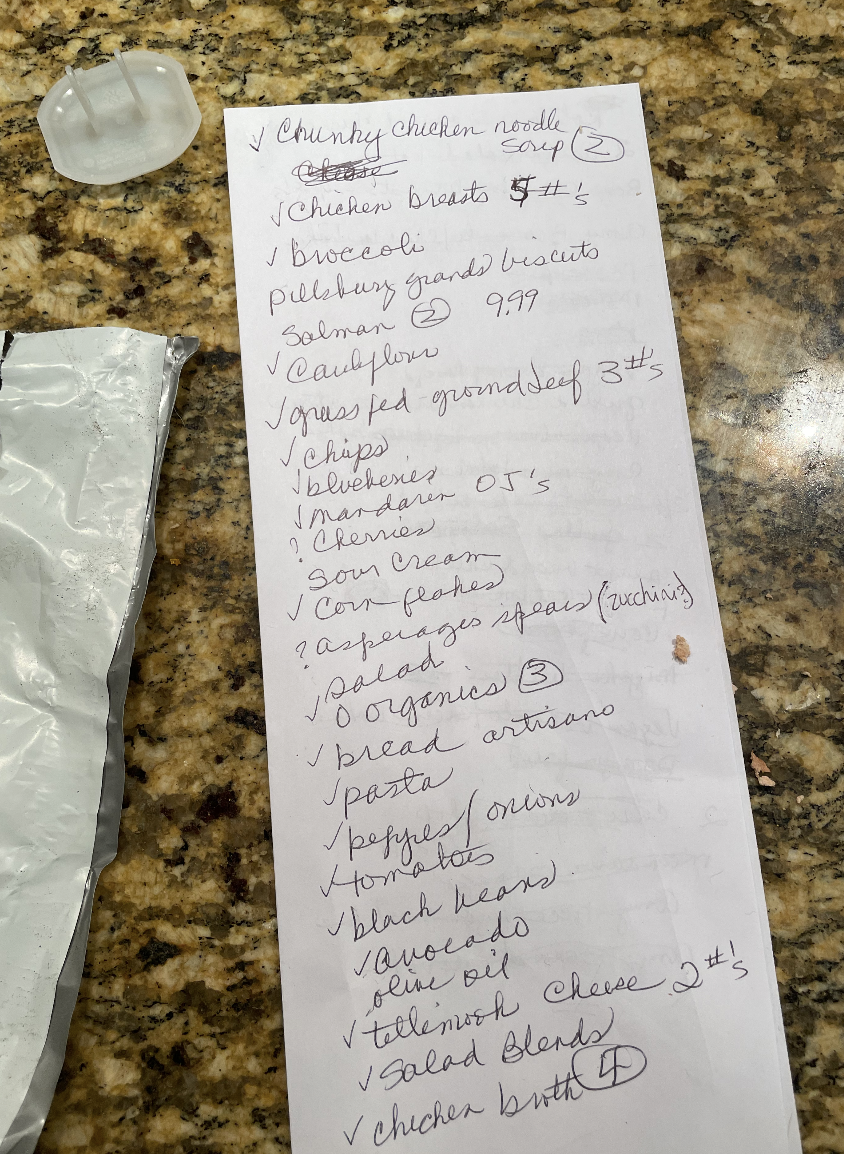 ✓ Chunky chicken noodle
soup (2)
Cheese
✓ Chicken breasts 5 #'s
✓ broccoli
pillsbury grands biscuits
Salman (2) 9.99
✓ Cauliflour
✓ grass fed ground beef 3 #'s
✓ chips
✓ blueberies
✓ mandaren OJ's
? Cherries
Sour Cream
✓ Corn flakes
? asperages spears (zucchinis)
salad
✓ O organics (3)
✓ bread artisano
✓ pasta
✓ peppres / onions
✓ tomatoes
✓ black beans
✓ avocado
olive oil
✓ tellemook cheese 2 #'s
✓ Salad Blends
✓ chicken broth (4)